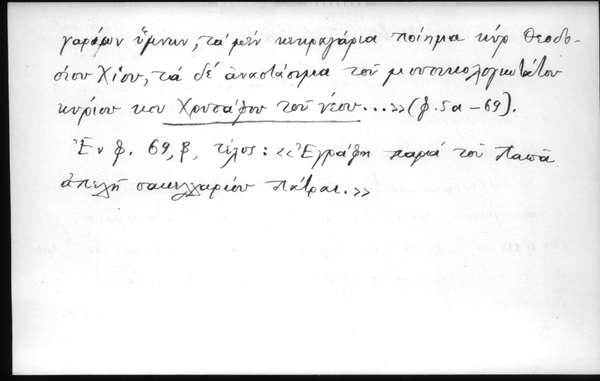 γαρίφων ὕμνων, τά μέν κεκραγάρια ποίημα κύρ Θεοδο-
σίου Χίου, τά δέ ἀναστάσιμα τοῦ μουσικολογιωτάτου
κυρίου κου Χρυσάφου τοῦ νέου...» (φ. 5α – 69).
Ἐν φ. 69,β, τέλος: «Ἐγράφη παρά τοῦ παπᾶ
ἀπελῆ σακελλαρίου Πάτραι.»